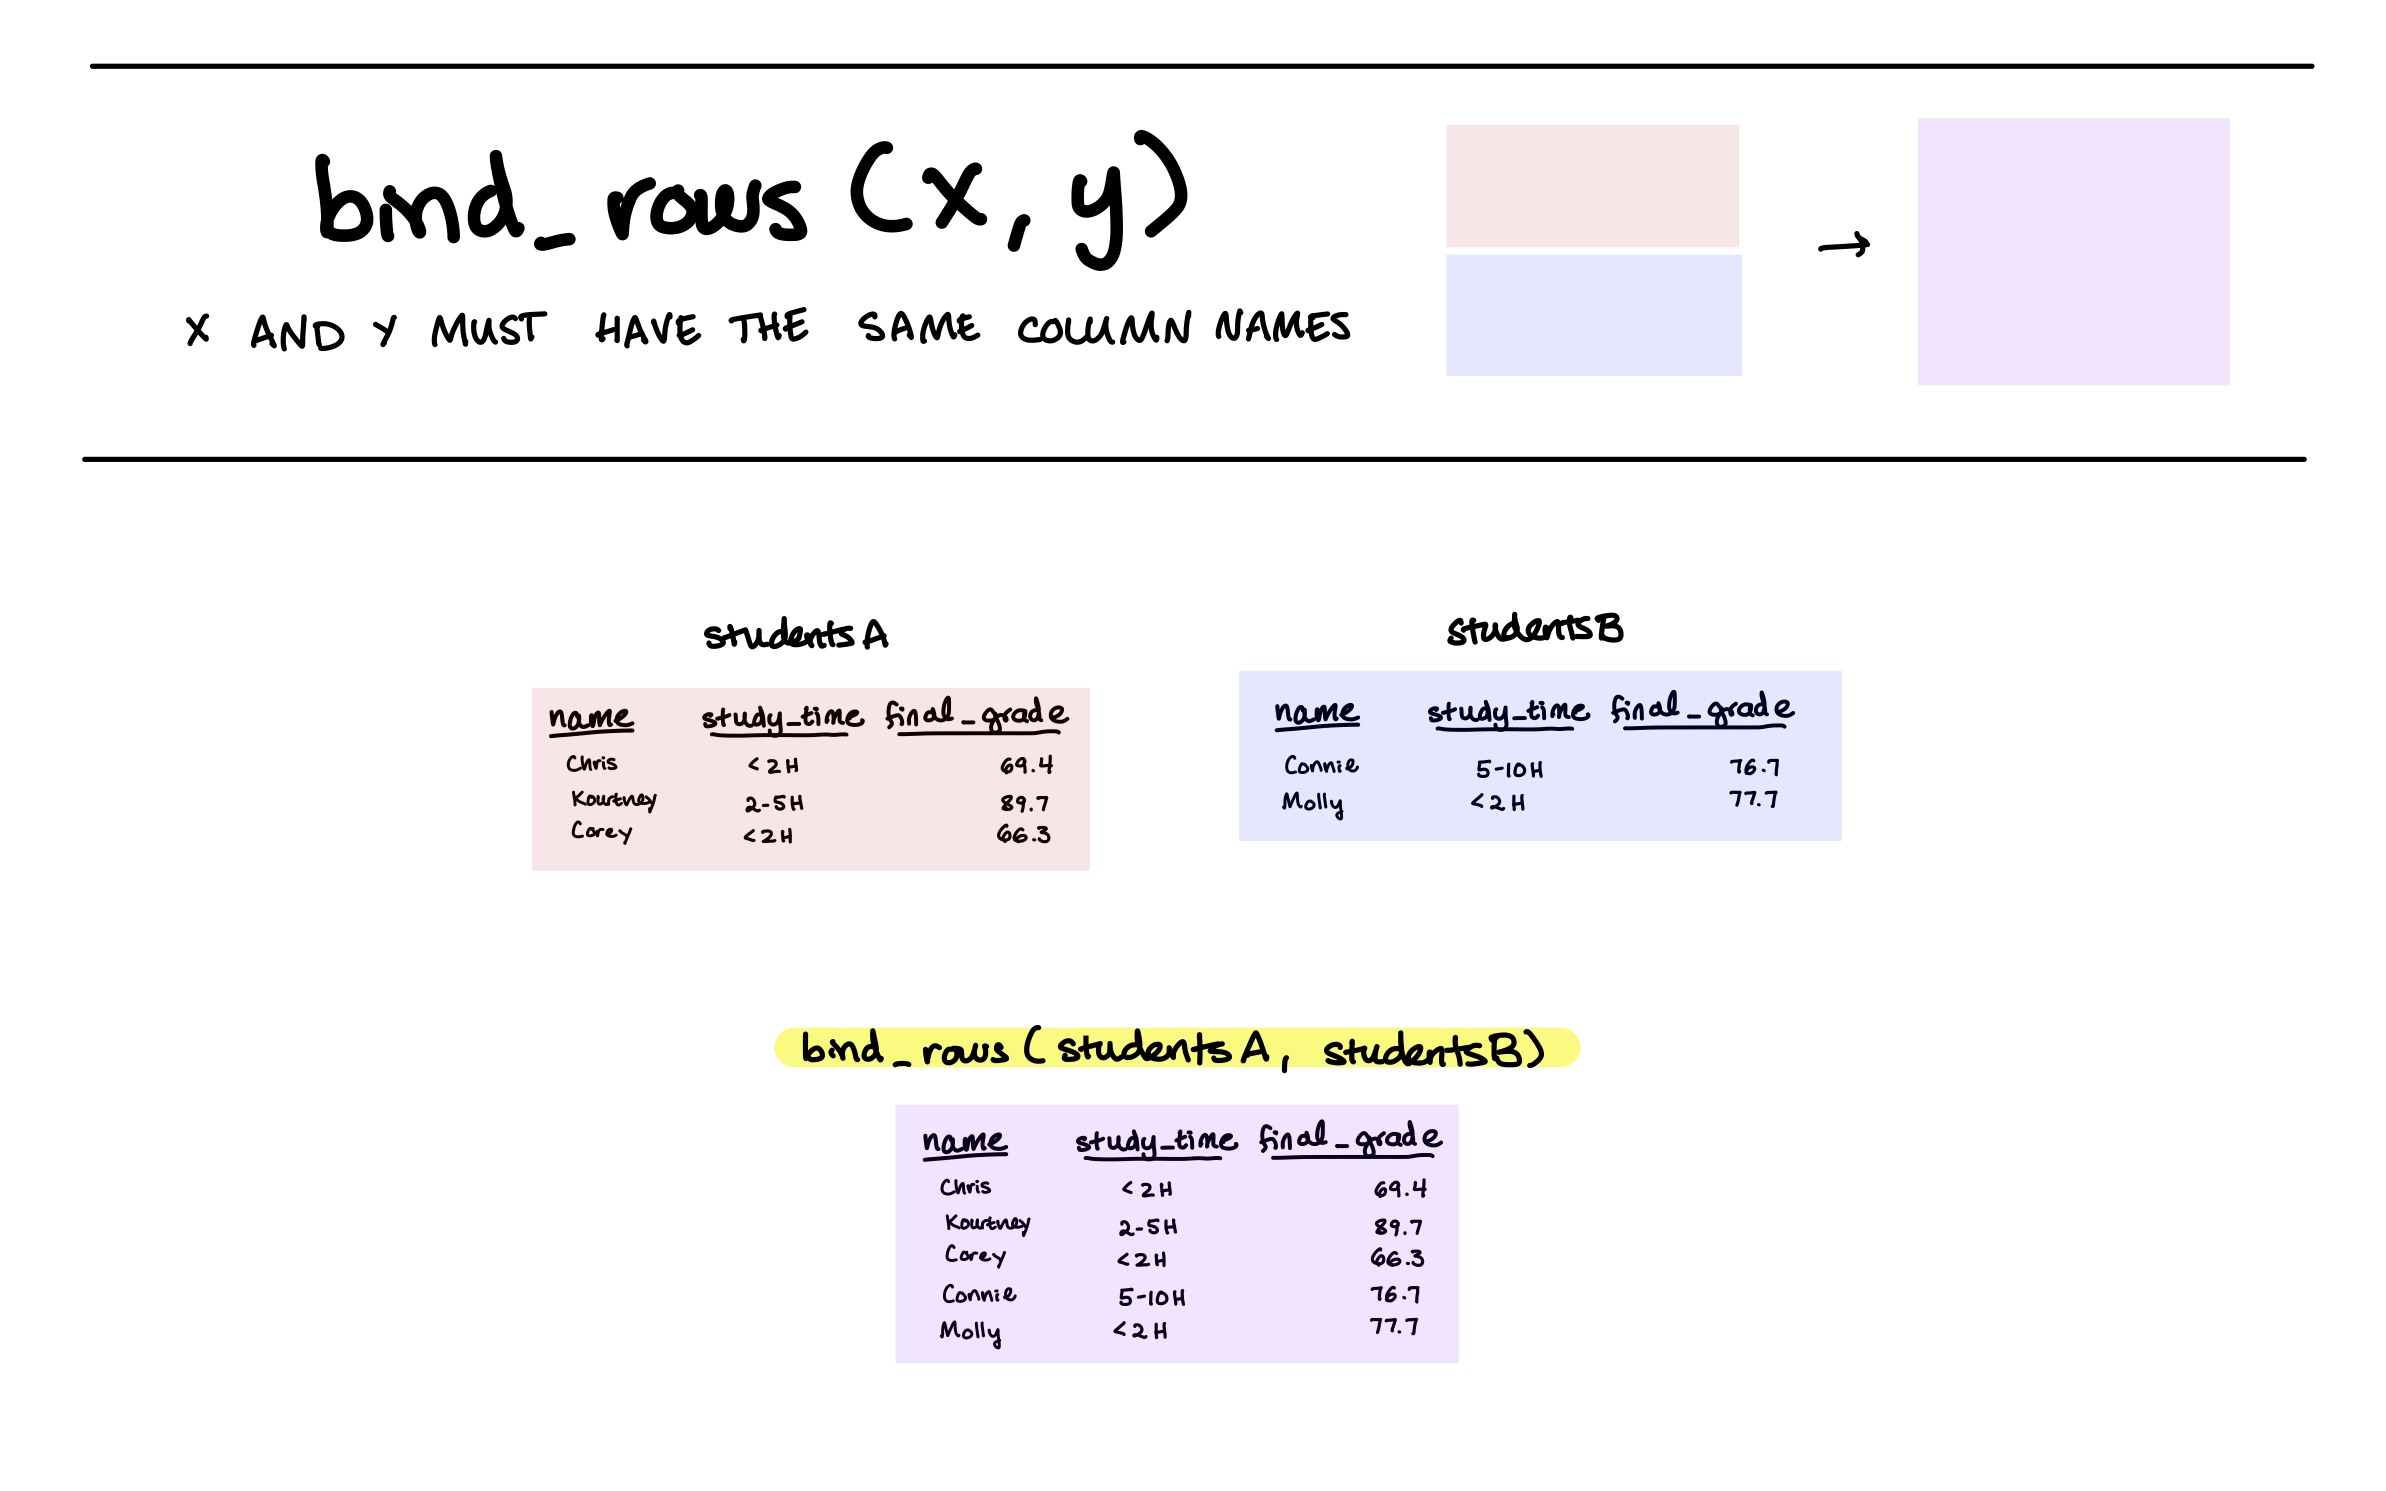 bind_rows (x, y)
X AND Y MUST HAVE THE SAME COLUMN NAMES
→
studentsA
name study_time final_grade
Chris <2H 69.4
Kourtney 2-5H 89.7
Corey <2H 66.3
studentsB
name study_time final_grade
Connie 5-10H 76.7
Molly <2H 77.7
bind_rows (studentsA, studentsB)
name study_time final_grade
Chris <2H 69.4
Kourtney 2-5H 89.7
Corey <2H 66.3
Connie 5-10H 76.7
Molly <2H 77.7